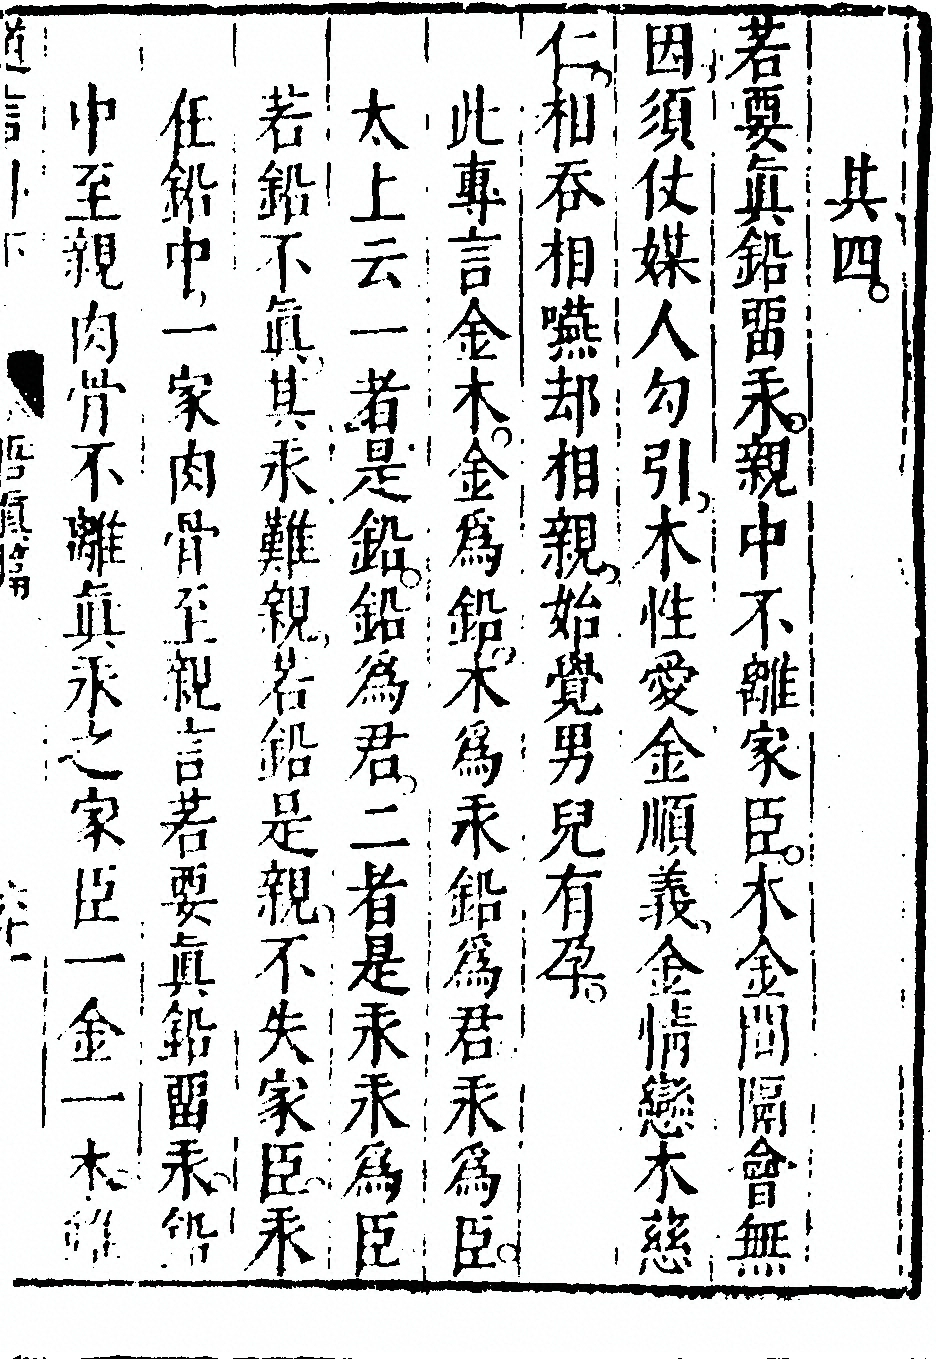 其四。
若要眞鉛畱汞。親中不離家臣。木金間隔會無
因須仗媒人勾引、木性愛金順義、金情戀木慈
仁、相吞相嚥却相親、始覺男兒有孕。
此專言金木。金爲鉛。木爲汞鉛爲君汞爲臣。
太上云一者是鉛。鉛爲君。二者是汞汞爲臣
若鉛不眞、其汞難親、若鉛是親、不失家臣。汞
在鉛中、一家肉骨至親言若要眞鉛畱汞。鉛
中至親肉骨不離眞汞之家臣一金一木。雖
道言外 下 悟眞篇 六十一